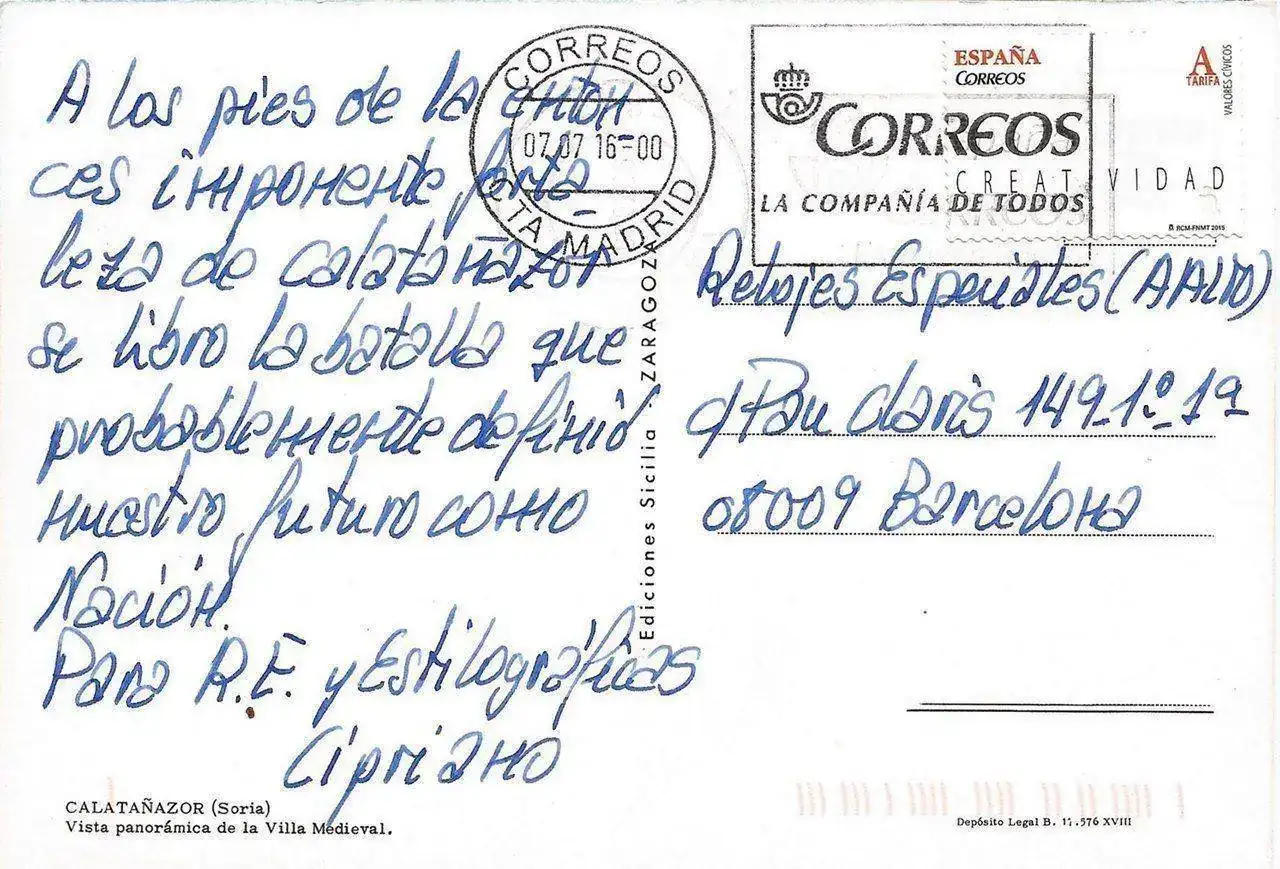 A los pies de la enton
ces imponente forta_
leza de calatañazor
se libro la batalla que
probablemente definió
nuestro futuro como
Nación.
Para R.E. y Estilográficas
Cipriano
CALATAÑAZOR (Soria)
Vista panorámica de la Villa Medieval.
Ediciones Sicilia - ZARAGOZA
CORREOS
07.07 16=00
CTA MADRID
CORREOS
LA COMPAÑÍA DE TODOS
ESPAÑA
CORREOS
A
TARIFA
VALORES CÍVICOS
CREATIVIDAD
RCM-FNMT 2015
Relojes Especiales (AALTO)
c/ Pau Claris 149-1º-1ª
08009 Barcelona
Depósito Legal B. 11.576 XVIII